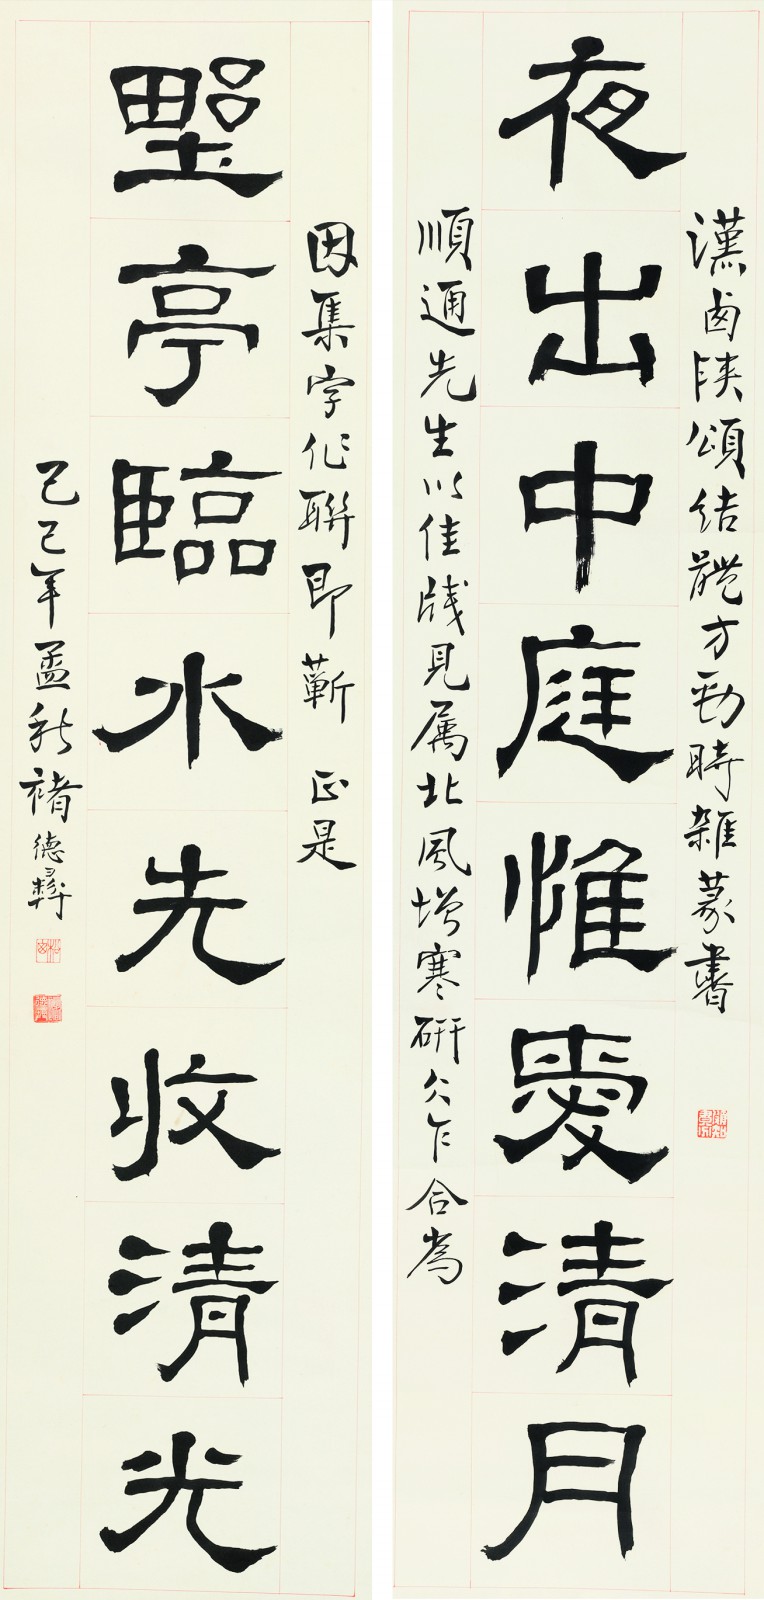 漢鹵陜頌結體方勁時雜篆書
夜出中庭惟愛清月
順通先生以佳牋見属北風增寒研仌乍合為
因集字作聯即蘄 正是
野亭臨水先收清光
己巳年孟秋褚德彝